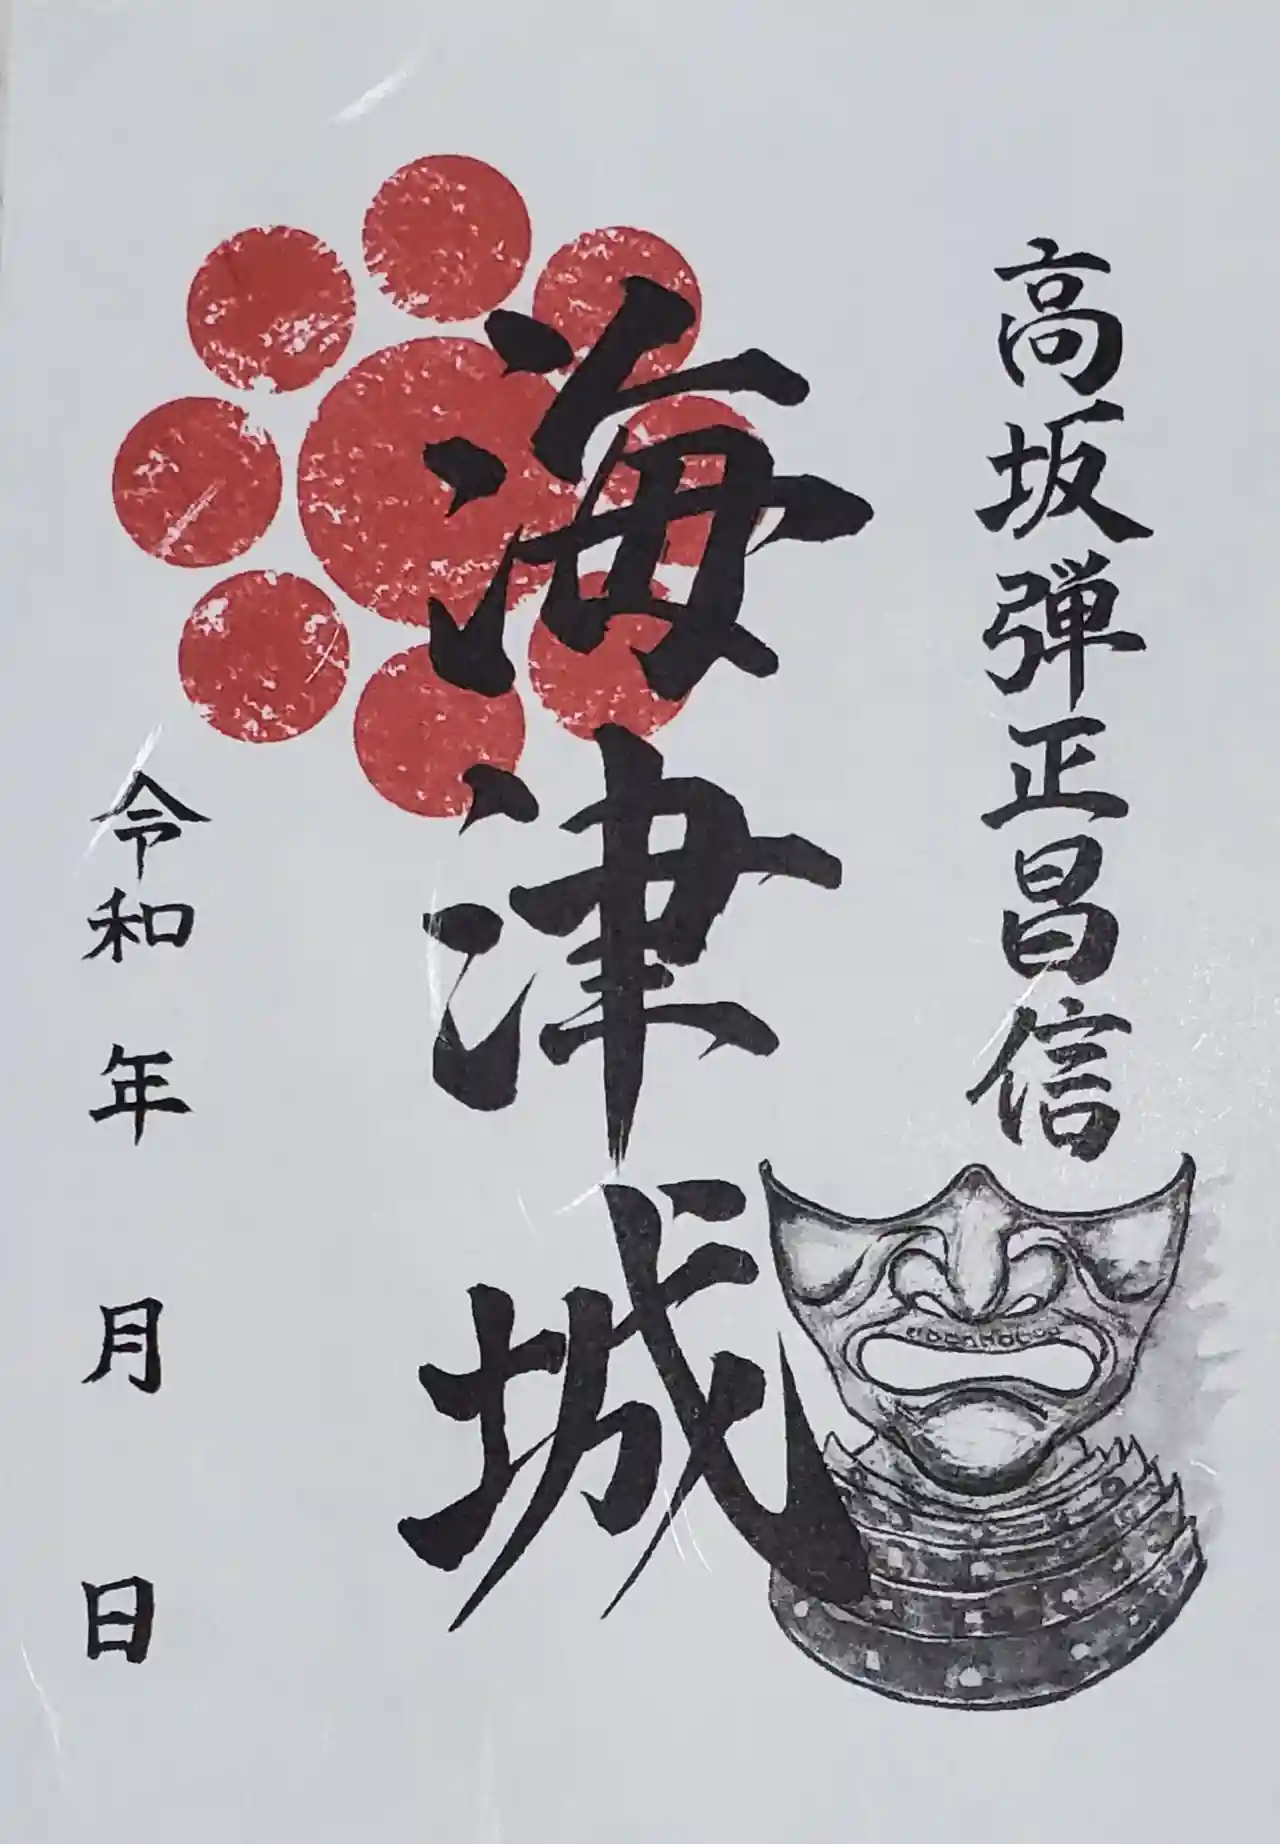 高坂弾正昌信
海津城
令和 年 月 日